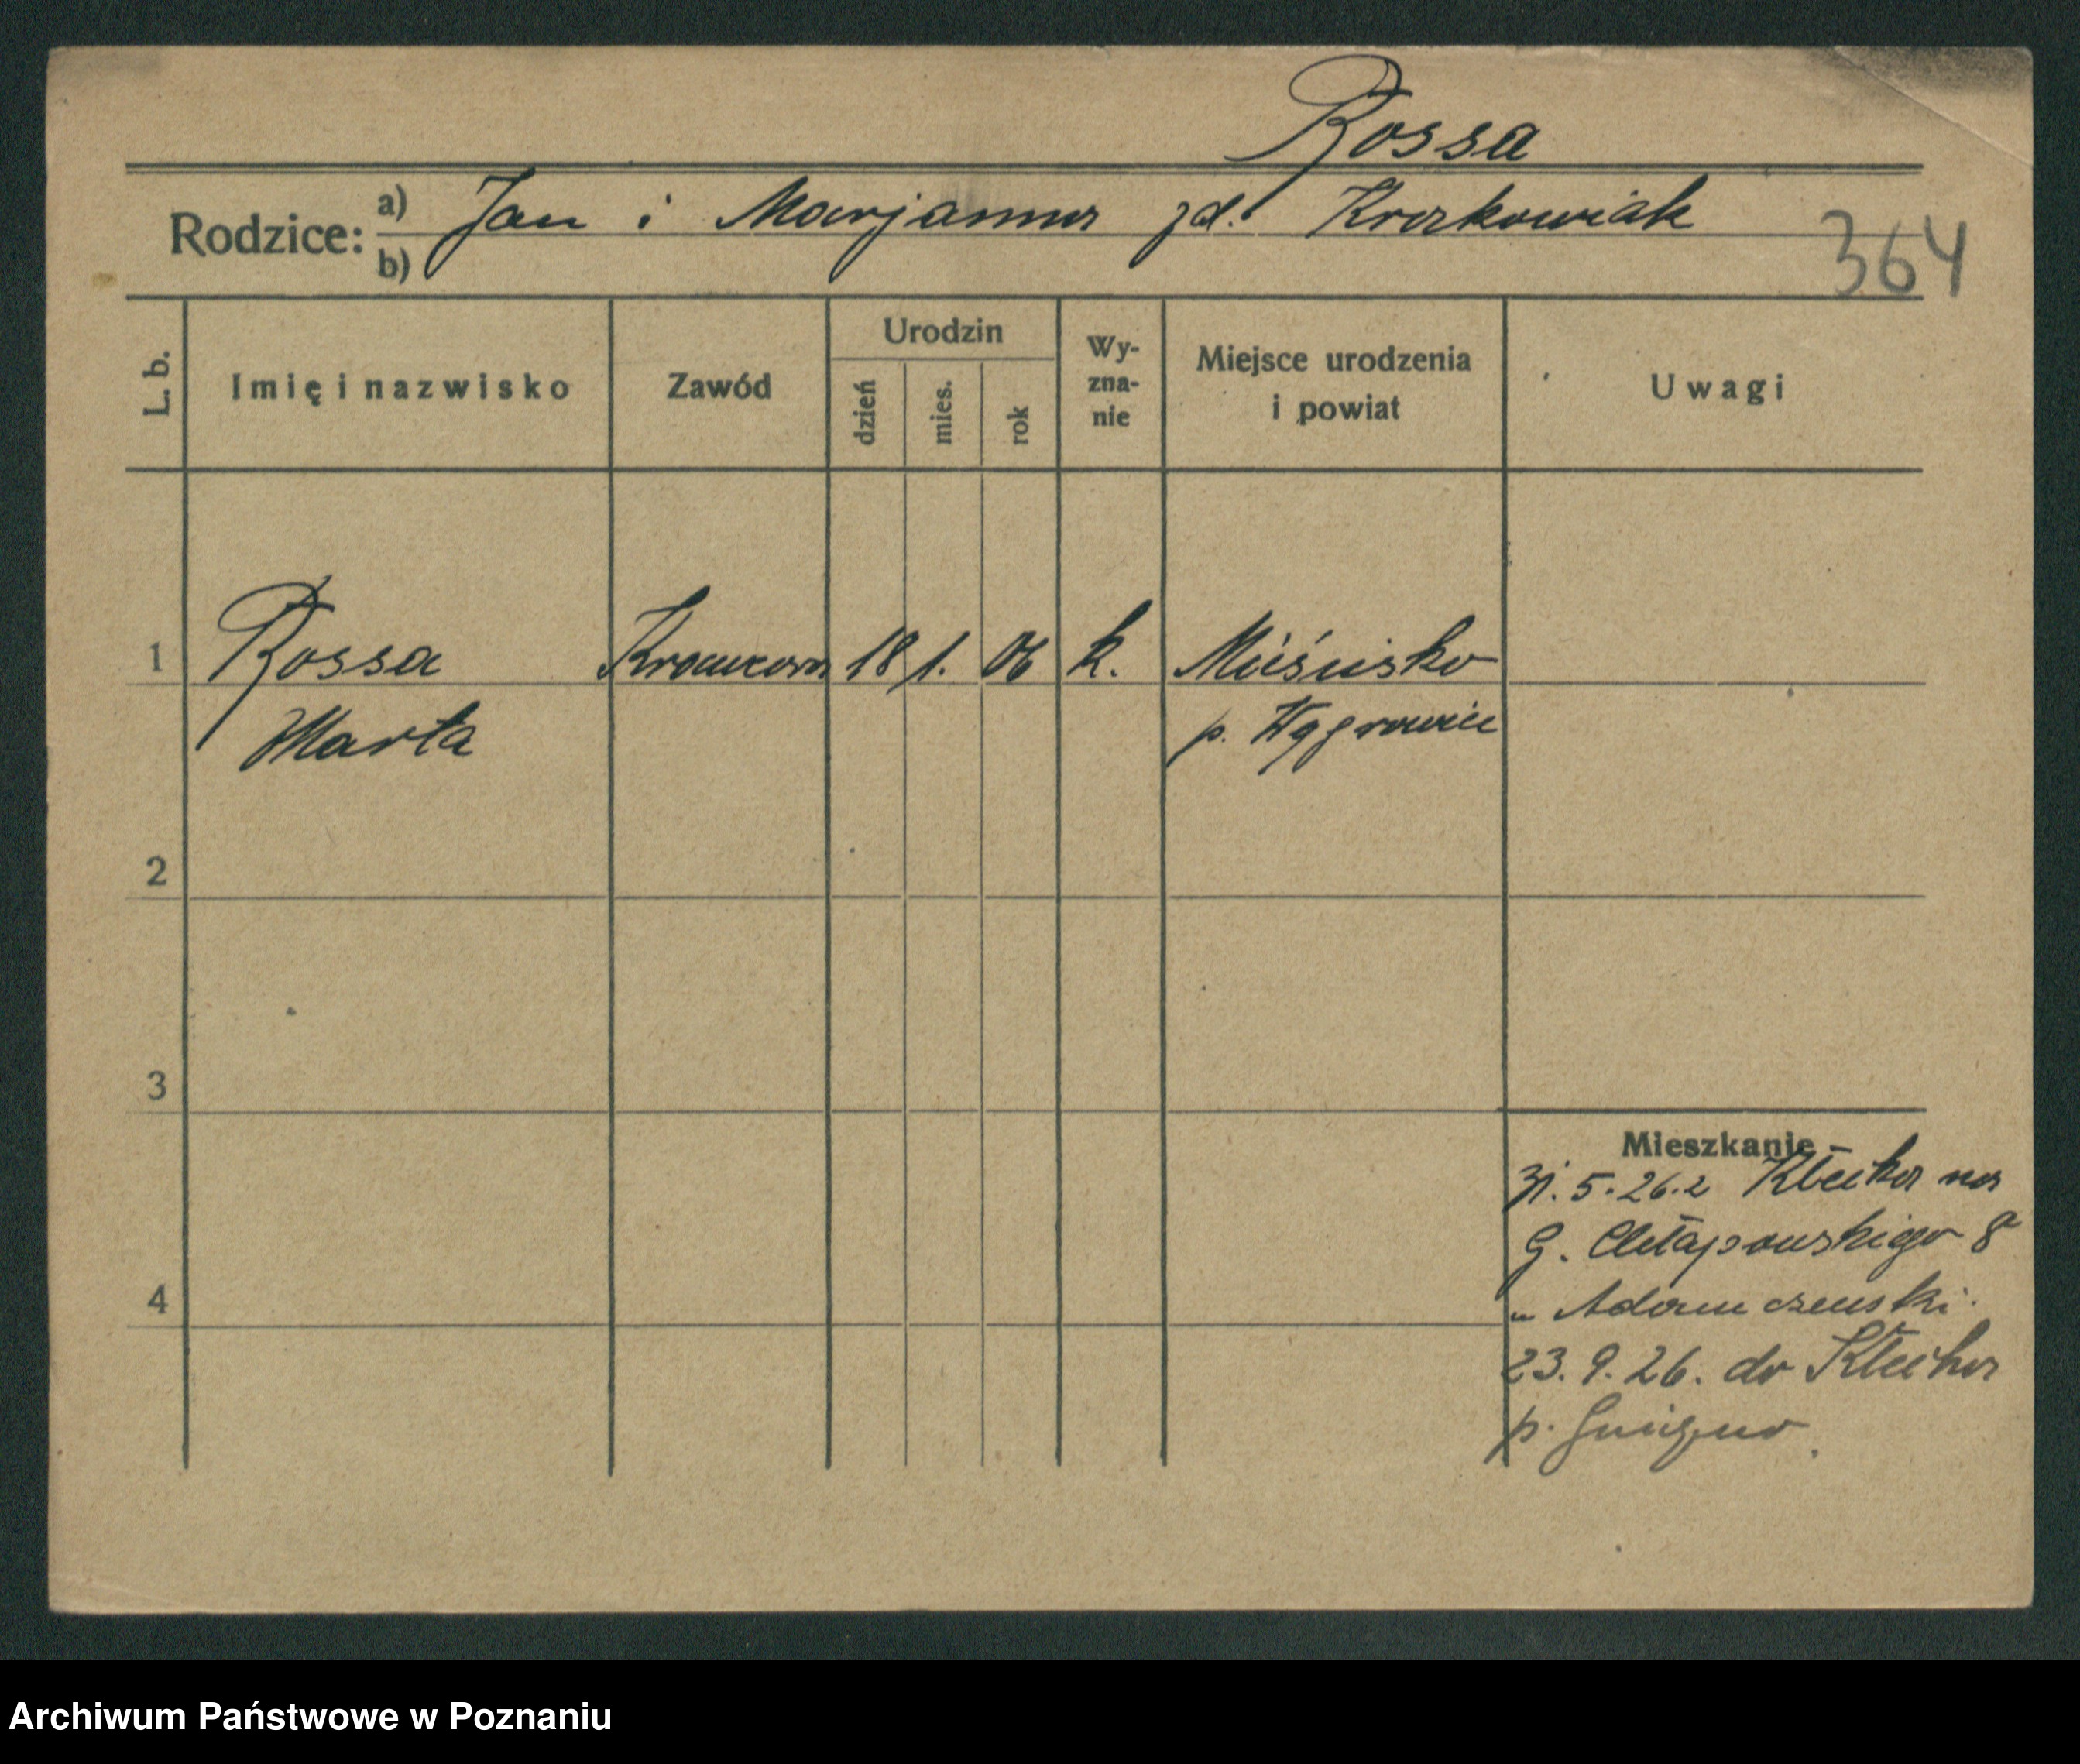 Rossa
Rodzice: a) Jan i Marjanna zd. Krakowiak
b)
364
L. b.
Imię i nazwisko
Zawód
Urodzin
dzień
mies.
rok
Wy-
zna-
nie
Miejsce urodzenia
i powiat
Uwagi
1 Rossa Krawcowa 18 1. 06 k. Mieścisko
Marta p. Wągrowiec
2
3
Mieszkanie
31. 5. 26. z Kłecka na
G. Chłapowskiego 8
4
u Adamczewski.
23. 9. 26. do Kłecka
p. Gniezno.
Archiwum Państwowe w Poznaniu